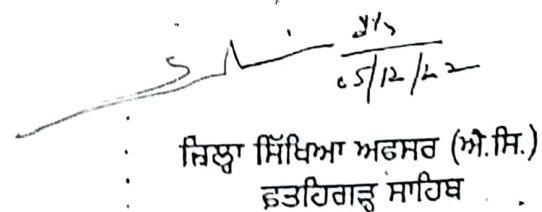 05/12/22
ਜ਼ਿਲ੍ਹਾ ਸਿੱਖਿਆ ਅਫਸਰ (ਐ.ਸਿ.)
ਫ਼ਤਹਿਗੜ੍ਹ ਸਾਹਿਬ